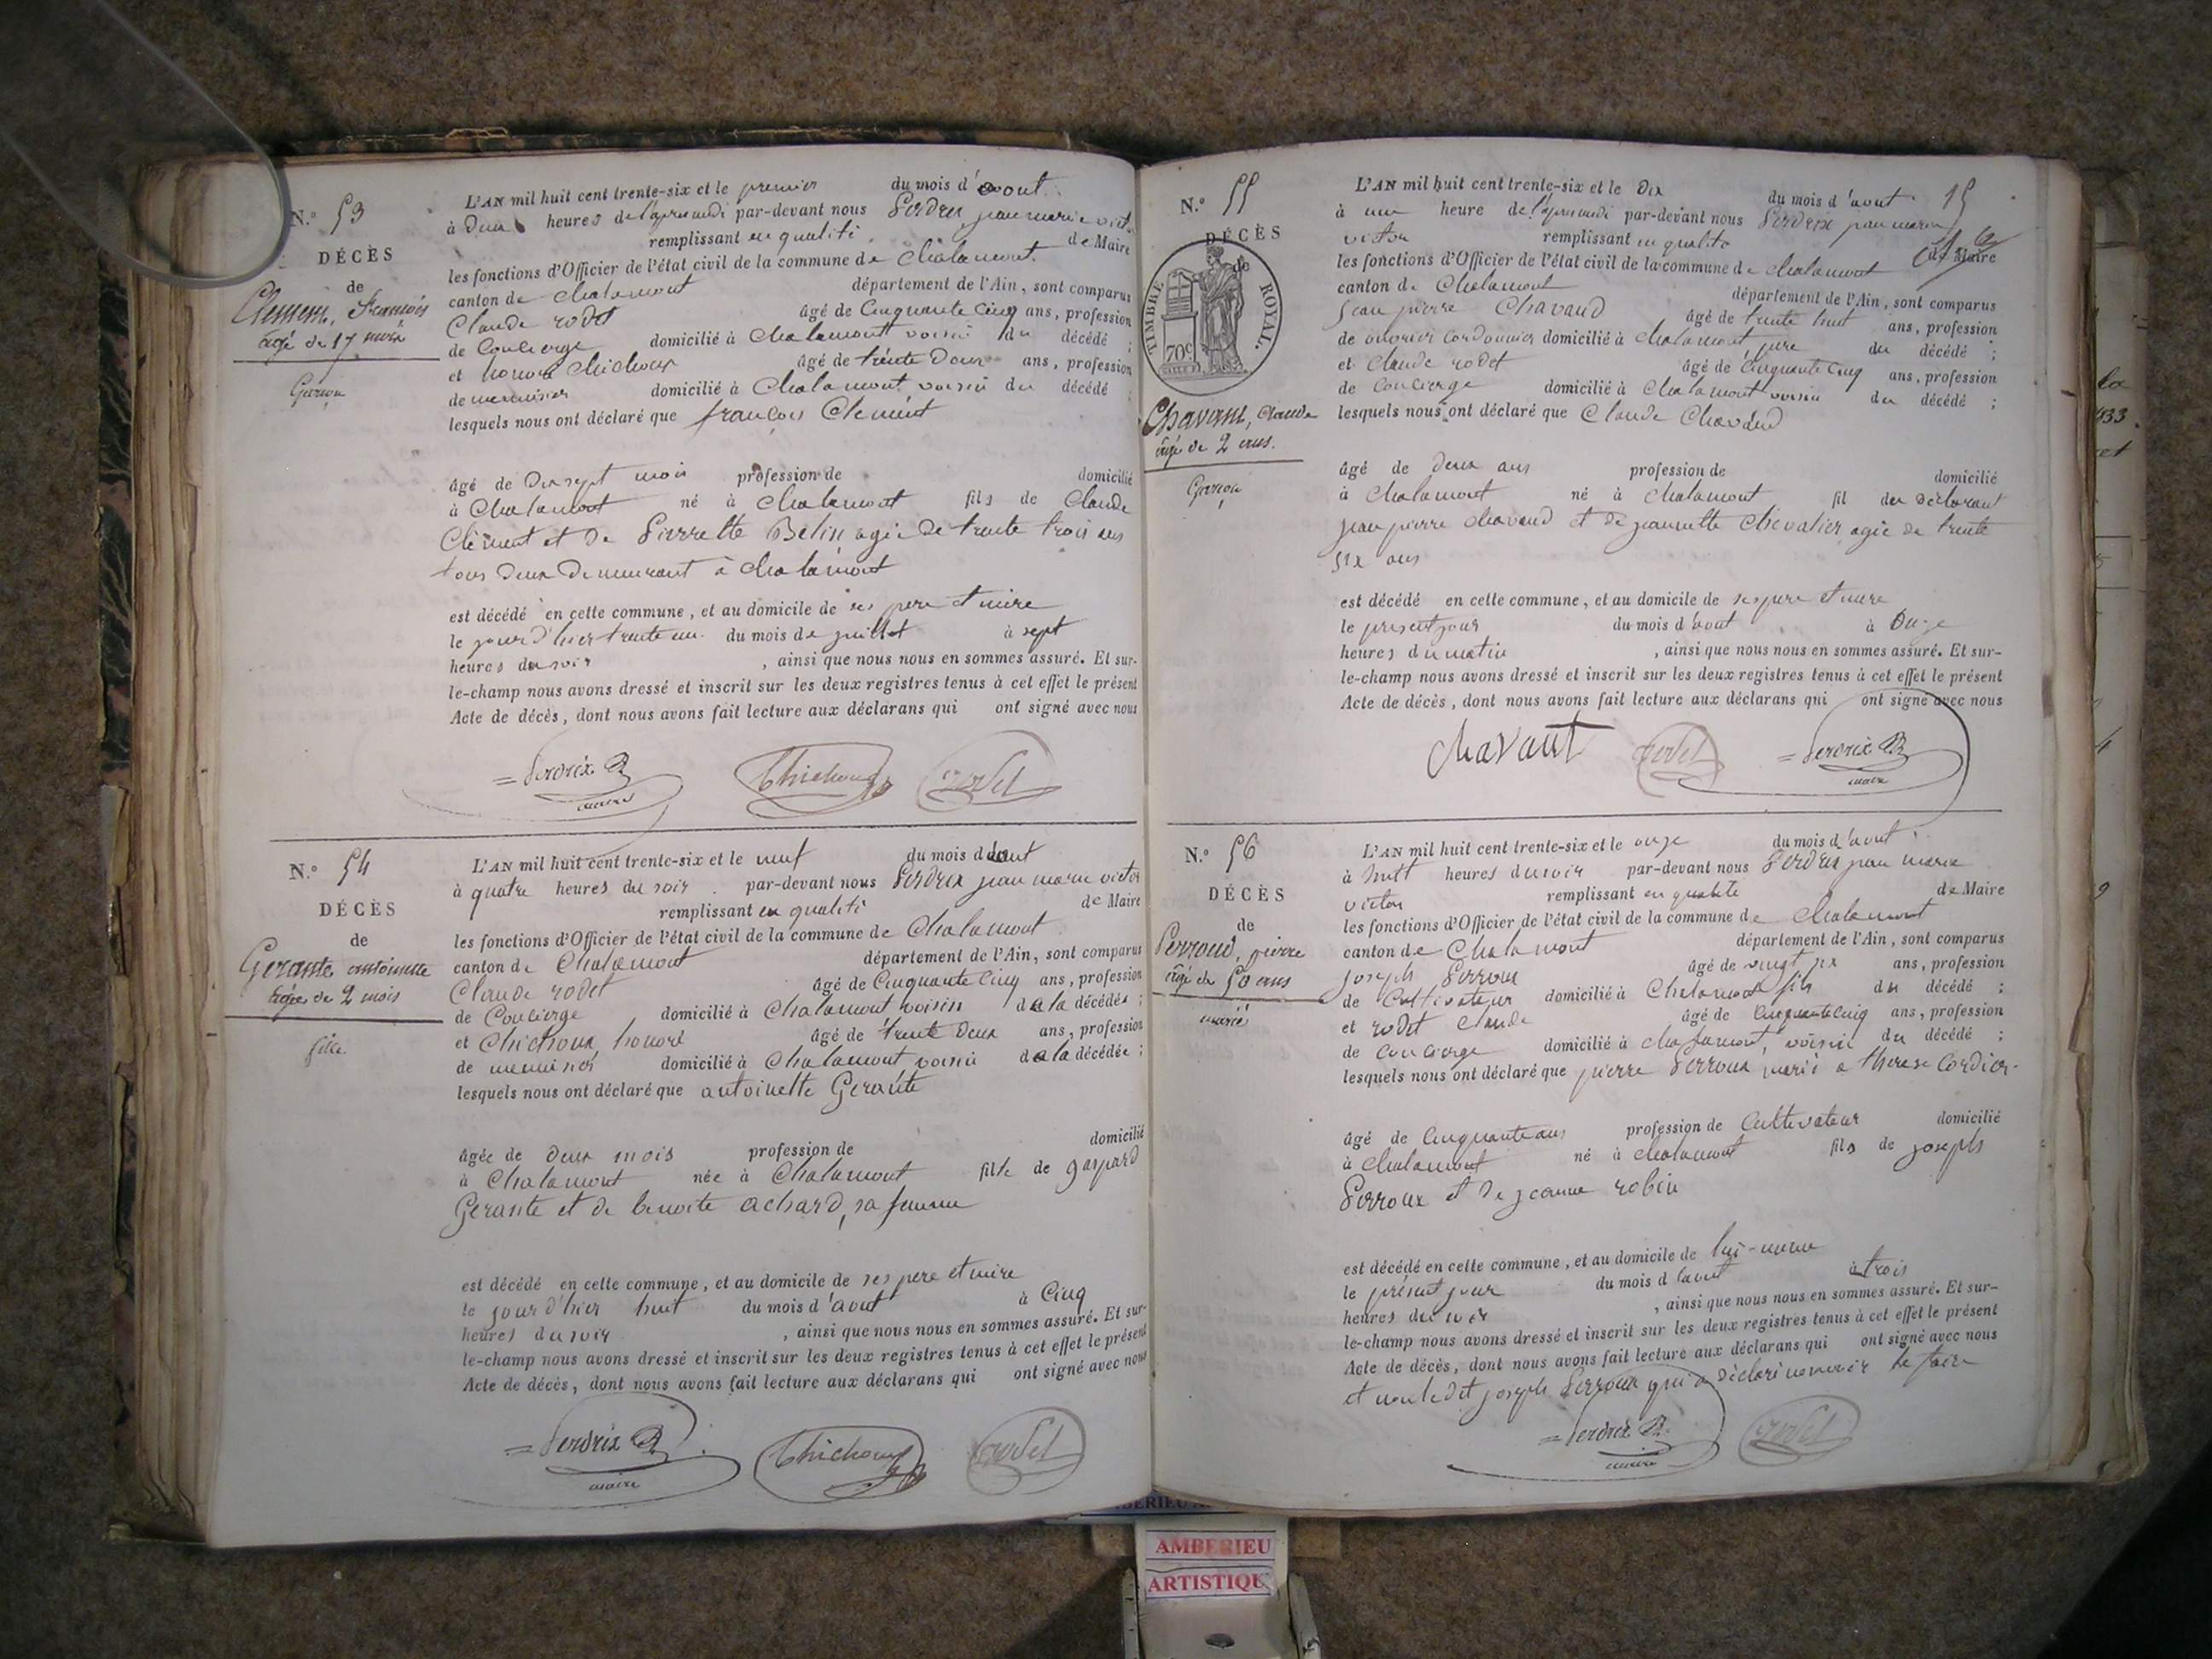 N.° 53
DÉCÈS
de
Clément, François
âgé de 17 mois
Garçon
L'AN mil huit cent trente-six et le premier du mois d'aout
à deux heures de l'apres midi par-devant nous Perdrix jean marie vict.
remplissant en qualité de Maire
les fonctions d'Officier de l'état civil de la commune de Chalamont
canton de chalamont département de l'Ain, sont comparus
Claude rodet âgé de Cinquante Cinq ans, profession
de Concierge domicilié à Chalamont voisin du décédé ;
et honoré Chichoux âgé de trente Deux ans, profession
de menuisier domicilié à Chalamont voisin du décédé ;
lesquels nous ont déclaré que françois Clement
âgé de Dix sept mois profession de domicilié
à Chalamont né à Chalamont fils de Claude
Clément et de Pierrette Belin agée de trente trois ans
tous deux demeurant à chalamont
est décédé en cette commune, et au domicile de ses pere et mere
le jour d'hier trente un du mois de juillet à sept
heures du soir , ainsi que nous nous en sommes assuré. Et sur-
le-champ nous avons dressé et inscrit sur les deux registres tenus à cet effet le présent
Acte de décès, dont nous avons fait lecture aux déclarans qui ont signé avec nous
Perdrix Chichoux rodet
maire
N.° 54
DÉCÈS
de
Gerante, antoinette
âgée de 2 mois
fille
L'AN mil huit cent trente-six et le neuf du mois d'aout
à quatre heures du soir par-devant nous Perdrix jean marie victor
remplissant en qualité de Maire
les fonctions d'Officier de l'état civil de la commune de Chalamont
canton de Chalamont département de l'Ain, sont comparus
Claude rodet âgé de Cinquante Cinq ans, profession
de Concierge domicilié à Chalamont voisin de la décédée ;
et Chichoux honoré âgé de trente Deux ans, profession
de menuisier domicilié à Chalamont voisin de la décédée ;
lesquels nous ont déclaré que antoinette Gerante
âgée de deux mois profession de domicilié
à Chalamont née à Chalamont fille de gaspard
Gerante et de benoite achard, sa femme
est décédé en cette commune, et au domicile de ses pere et mere
le jour d'hier huit du mois d'aout à Cinq
heures du soir , ainsi que nous nous en sommes assuré. Et sur-
le-champ nous avons dressé et inscrit sur les deux registres tenus à cet effet le présent
Acte de décès, dont nous avons fait lecture aux déclarans qui ont signé avec nous
Perdrix Chichoux rodet
maire
15
N.° 55
DÉCÈS
de
TIMBRE ROYAL.
70c
Chavant, Claude
âgé de 2 ans.
Garçon
L'AN mil huit cent trente-six et le dix du mois d'aout
à une heure de l'apres midi par-devant nous Perdrix jean marie
victor remplissant en qualité de Maire
les fonctions d'Officier de l'état civil de la commune de chalamont
canton de Chalamont département de l'Ain, sont comparus
Jean pierre Chavand âgé de trente huit ans, profession
de ouvrier cordonnier domicilié à Chalamont pere du décédé ;
et Claude rodet âgé de Cinquante Cinq ans, profession
de Concierge domicilié à Chalamont voisin du décédé ;
lesquels nous ont déclaré que Claude Chavand
âgé de deux ans profession de domicilié
à Chalamont né à Chalamont fil du déclarant
jean pierre chavand et de jeannette Chevalier agée de trente
six ans
est décédé en cette commune, et au domicile de ses pere et mere
le present jour du mois d'aout à Onze
heures du matin , ainsi que nous nous en sommes assuré. Et sur-
le-champ nous avons dressé et inscrit sur les deux registres tenus à cet effet le présent
Acte de décès, dont nous avons fait lecture aux déclarans qui ont signé avec nous
chavant rodet Perdrix
maire
N.° 56
DÉCÈS
de
Perroud, pierre
âgé de 50 ans
marié
L'AN mil huit cent trente-six et le onze du mois d'aout
à huit heures du soir par-devant nous Perdrix jean marie
victor remplissant en qualité de Maire
les fonctions d'Officier de l'état civil de la commune de Chalamont
canton de Chalamont département de l'Ain, sont comparus
joseph Perroux âgé de vingt six ans, profession
de Cultivateur domicilié à Chalamont fils du décédé ;
et rodet Claude âgé de Cinquante Cinq ans, profession
de Concierge domicilié à chalamont, voisin du décédé ;
lesquels nous ont déclaré que pierre Perroux marié a therese Cordier
âgé de Cinquante ans profession de Cultivateur domicilié
à Chalamont né à chalamont fils de joseph
Perroux et de jeanne robin
est décédé en cette commune, et au domicile de lui-meme
le présent jour du mois d'aout à trois
heures du soir , ainsi que nous nous en sommes assuré. Et sur-
le-champ nous avons dressé et inscrit sur les deux registres tenus à cet effet le présent
Acte de décès, dont nous avons fait lecture aux déclarans qui ont signé avec nous
et non ledit joseph Perroux qui a déclaré ne savoir le faire
Perdrix rodet
maire
AMBERIEU
ARTISTIQUE